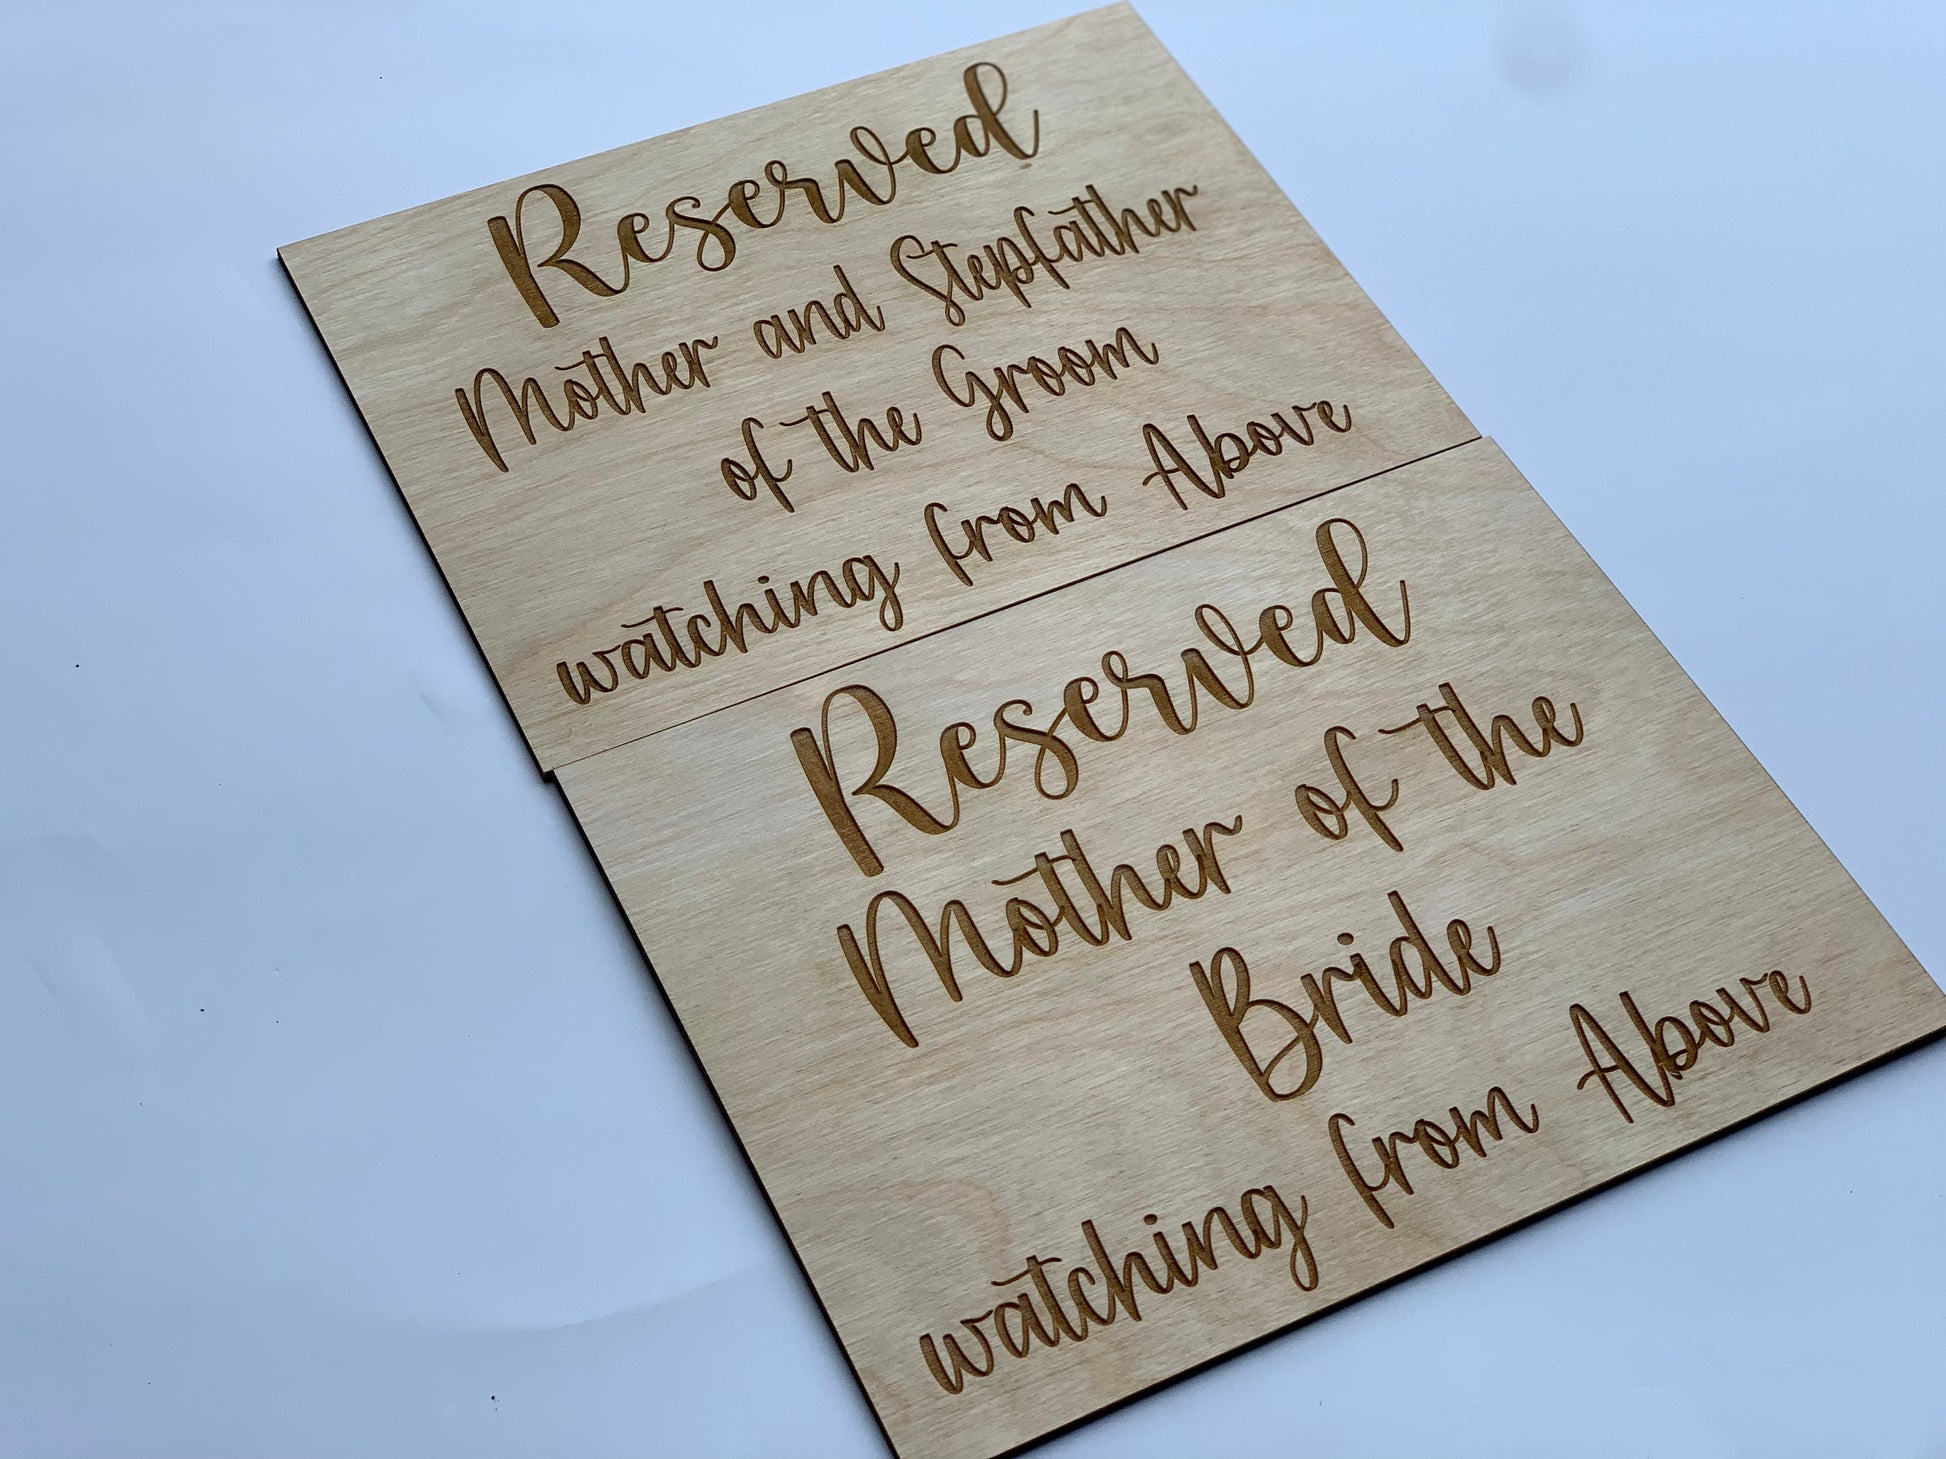 Reserved
Mother and Stepfather
of the Groom
watching from Above
Reserved
Mother of the
Bride
watching from Above